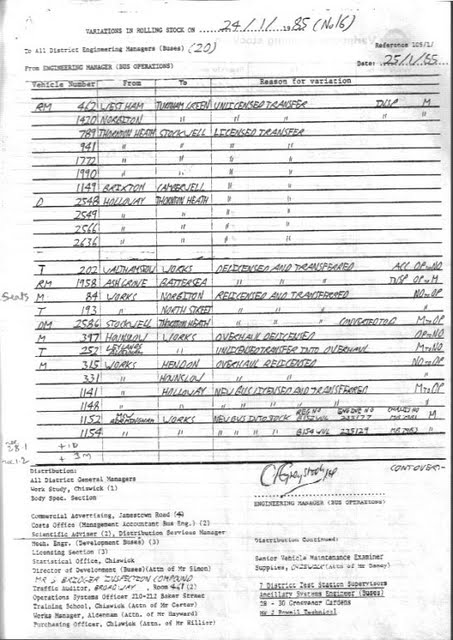 VARIATIONS IN ROLLING STOCK ON 24/1/1985 (No16)
To All District Engineering Managers (Buses) (20) Reference 105/1/
From ENGINEERING MANAGER (BUS OPERATIONS) Date: 25/1/85
Vehicle Number From To Reason for variation
RM 462 WEST HAM TURNHAM GREEN UNLICENSED TRANSFER INSP M
1420 NORBITON " " " " "
789 THORNTON HEATH STOCKWELL LICENSED TRANSFER
941 " " " "
1772 " " " "
1990 " " " "
1149 BRIXTON CAMBERWELL " "
D 2548 HOLLOWAY THORNTON HEATH " "
2549 " " " "
2566 " " " "
2636 " " " "
T 202 WALTHAMSTOW WORKS DELICENSED AND TRANSFERRED ACC OP to NO
RM 1958 ASH GROVE BATTERSEA " " " INSP OP to M
Seats M 84 WORKS NORBITON RELICENSED AND TRANSFERRED NO to OP
T 193 " NORTH STREET " " " "
DM 2586 STOCKWELL THORNTON HEATH " " " CONVERTED TO M to OP
M 397 HOUNSLOW WORKS OVERHAUL DELICENSED OP to NO
T 252 LEYLANDS " UNLICENSED TRANSFER INTO OVERHAUL M to NO
M 315 WORKS HENDON OVERHAUL RELICENSED NO to OP
331 " HOUNSLOW " " "
1141 " HOLLOWAY NEW BUS LICENSED AND TRANSFERRED M to OP
1148 " " " " " " "
1152 MCW BIRMINGHAM WORKS NEW BUS INTO STOCK REG NO ENGINE NO CHASSIS NO M
1154 " " " " " " B154 WUL 235129
+ 1 D
+ 3 M
Distribution: CONT OVER:-
All District General Managers
Work Study, Chiswick (1)
Body Spec. Section
ENGINEERING MANAGER (BUS OPERATIONS)
Commercial Advertising, Jamestown Road
Costs Office (Management Accountant Bus Eng.) (2)
Scientific Adviser (2), Distribution Services Manager
Mech. Engr. (Development Buses) (3)
Licensing Section (3)
Statistical Office, Chiswick
Director of Development (Buses)(Attn of Mr Simon)
MR J BRIDGER INSPECTION COMPOUND
Traffic Auditor, BROADWAY, ROOM (2)
Operations Systems Officer 210-212 Baker Street
Training School, Chiswick (Attn of Mr Carter)
Works Manager, Aldenham (Attn of Mr Hayward)
Purchasing Officer, Chiswick (Attn of Mr Hillier)
Distribution Continued:
Senior Vehicle Maintenance Examiner
Supplies, CHISWICK (Attn of Mr Damey)
7 District Test Station Supervisors
Ancillary Systems Engineer (Buses)
28 - 30 Grosvenor Gardens
MR J Powell Technical